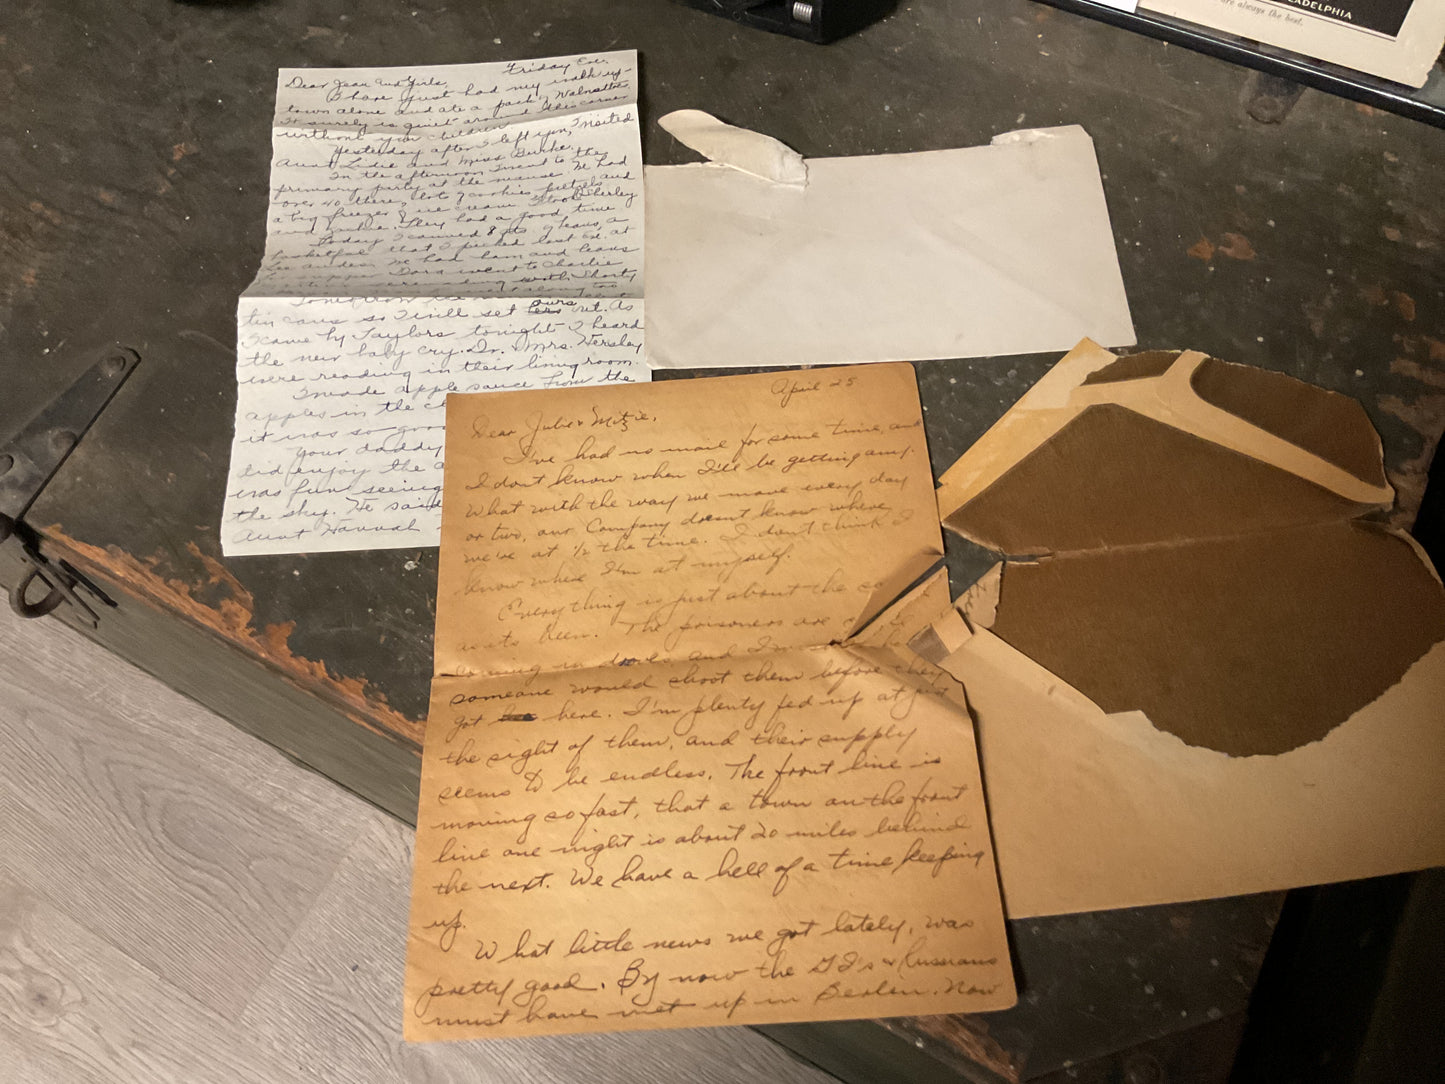 Friday Eve.
Dear Jean and Girls,
I have just had my walk up-
town alone and ate a pack of Walnettos
It surely is quiet around this corner
without you children.
Yesterday after I left you, I visited
Aunt Lidie and Miss Burke.
In the afternoon I went to the
primary party at the manse. We had
over 40 there, lots of cookies pretzels and
a big freezer of ice cream. I took Shirley
and . They had a good time
Today I canned 8 pts. of beans, a
basketful that I picked last Eve. at
We had ham and beans
for supper Dora went to Charlie
with Shorty
Tomorrow
ours
tin cans so I will set out. As
I came by Taylors tonight I heard
the new baby cry. Dr. & Mrs. Hersley
were reading in their living room.
I made apple sauce from the
apples in the
it was so good
Your daddy
did enjoy the
was fun seeing
the sky. He said
Aunt Hannah
April 25
Dear Jule & Mitzie,
I've had no mail for some time, and
I don't know when I'll be getting any.
What with the way we move every day
or two, our Company doesn't know where
we're at ½ the time. I don't think I
know where I'm at myself.
Everything is just about the
as its been. The prisoners are
coming in droves and
someone would shoot them before they
got here. I'm plenty fed up at just
the sight of them, and their supply
seems to be endless. The front line is
moving so fast, that a town on the front
line one night is about 20 miles behind
the next. We have a hell of a time keeping
up.
What little news we got lately, was
pretty good. By now the GI's & Russians
must have met up in Berlin. Now
LADELPHIA
are always the best.